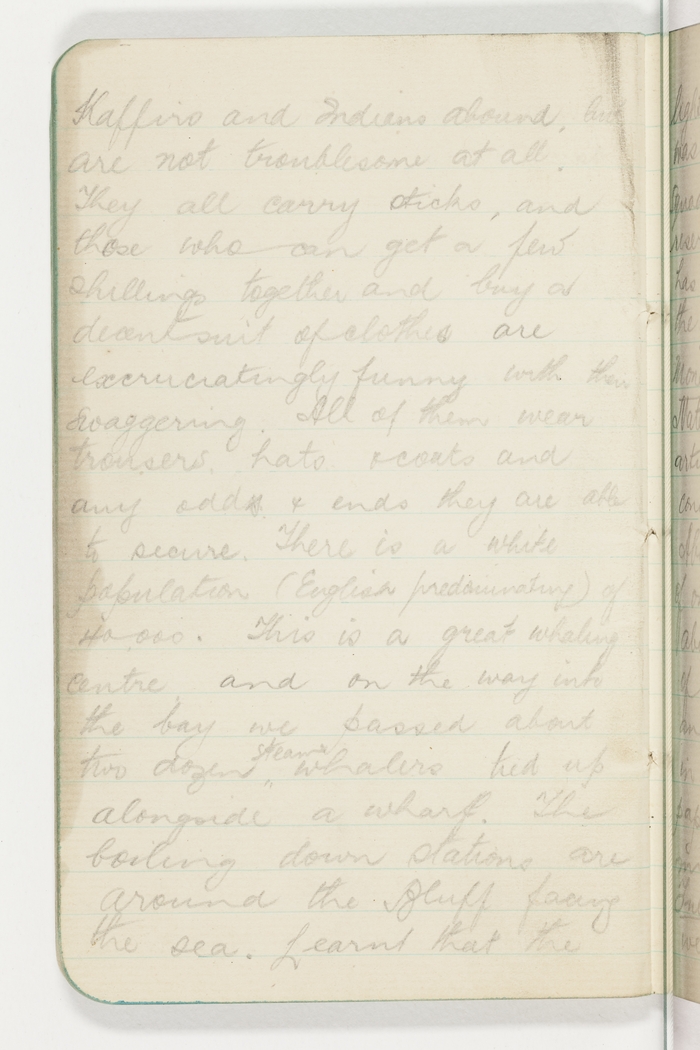 Kaffirs and Indians abound, but
are not troublesome at all.
They all carry sticks, and
those who can get a few
shillings together and buy a
decent suit of clothes are
excruciatingly funny with their
swaggering. All of them wear
trousers, hats & coats and
any odds & ends they are able
to secure. There is a white
population (English predominating) of
40,000. This is a great whaling
centre and on the way into
the bay we passed about
two dozen steam whalers tied up
alongside a wharf. The
boiling down stations are
around the Bluff facing
the sea. Learnt that the